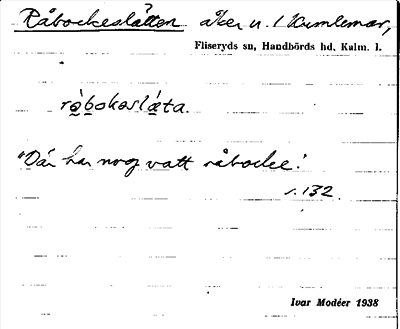 Råbockeslätten åker u. 1 Kumlemar,
Fliseryds sn, Handbörds hd, Kalm. l.
råbokəslǽta.
"Där har nog vatt råbocke".
s. 132.
Ivar Modéer 1938